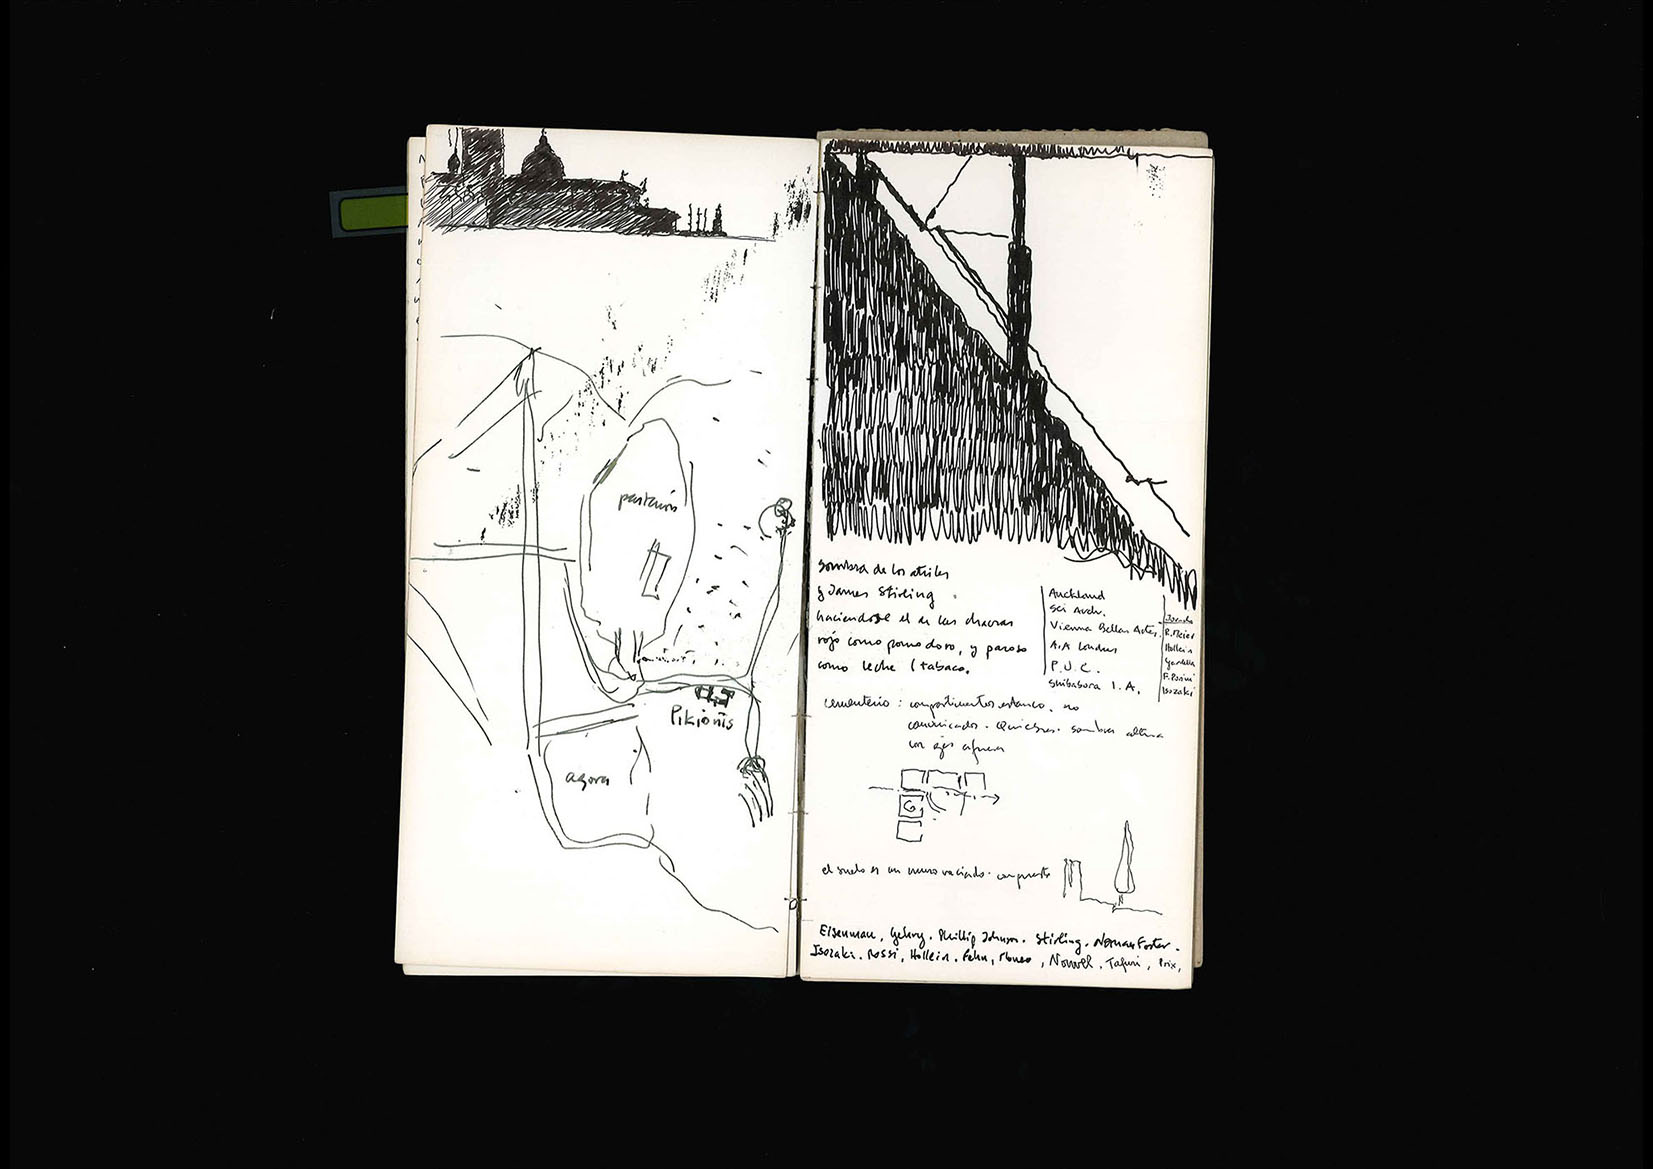 partenós
Pikionis
agora
sombra de los atriles
y James Stirling
haciendose el de las chacras
rojo como pomodoro, y paroso
como leche / tabaco.
Auckland
Sci Arch.
Vienna Bellas Artes.
A.A Londres
P.U.C.
Shibaura I.A.
R. Meier
Hollein
Gardella
F. Purini
Isozaki
cementerio : compartimentos estanco, no
comunicados. Quiebres. sombra
con ejes afuera
G
el suelo es un muro vaciado.
Eisenman, Gehry. Phillip Johnson. Stirling. Norman Foster.
Isozaki. Rossi, Hollein. Fehn, Moneo, Nouvel. Tafuri, Prix,